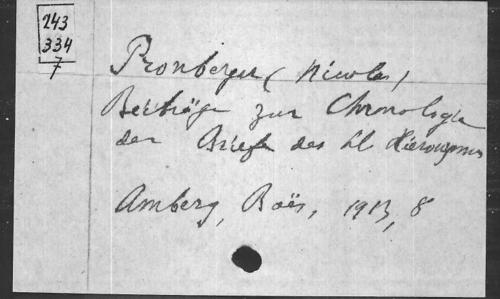 243
334
7
Pronberger (Nicolas)
Beiträge zur Chronologie
der Briefe des hl Hieronymus
Amberg, Boës, 1913, 8°